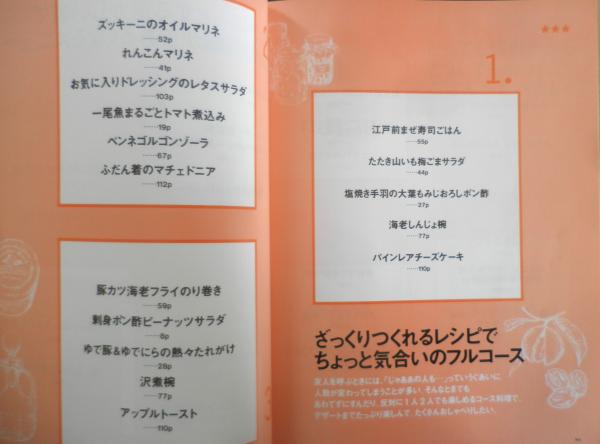 ズッキーニのオイルマリネ
……52p
れんこんマリネ
……41p
お気に入りドレッシングのレタスサラダ
……103p
一尾魚まるごとトマト煮込み
……19p
ペンネゴルゴンゾーラ
……67p
ふだん着のマチェドニア
……112p
豚カツ海老フライのり巻き
……59p
刺身ポン酢ピーナッツサラダ
……8p
ゆで豚&ゆでにらの熱々たれがけ
……28p
沢煮椀
……77p
アップルトースト
……110p
★★★
1.
江戸前まぜ寿司ごはん
……55p
たたき山いも梅ごまサラダ
……44p
塩焼き手羽の大葉もみじおろしポン酢
……27p
海老しんじょ椀
……77p
パインレアチーズケーキ
……110p
ざっくりつくれるレシピで
ちょっと気合いのフルコース
友人を呼ぶときには、「じゃああの人も…」っていうぐあいに
人数が変わってしまうことが多い。そんなときでも
あわてずにすんだり、反対に1人2人でも楽しめるコース料理で、
デザートまでたっぷり楽しんで、たくさんおしゃべりしたい。